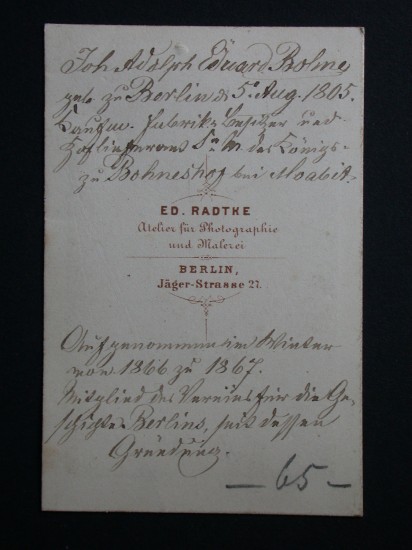 Joh Adolph Eduard Bohne,
geb. zu Berlin d. 5. Aug. 1805.
Kaufm. Fabrik-Besitzer und
Hoflieferant Sr. M. des Königs
zu Bohneshof bei Moabit.
ED. RADTKE
Atelier für Photographie
und Malerei
BERLIN,
Jäger-Strasse 27.
Aufgenommen im Winter
von 1866 zu 1867.
Mitglied des Vereins für die Ge-
schichte Berlins, seit dessen
Gründung.
— 65 —